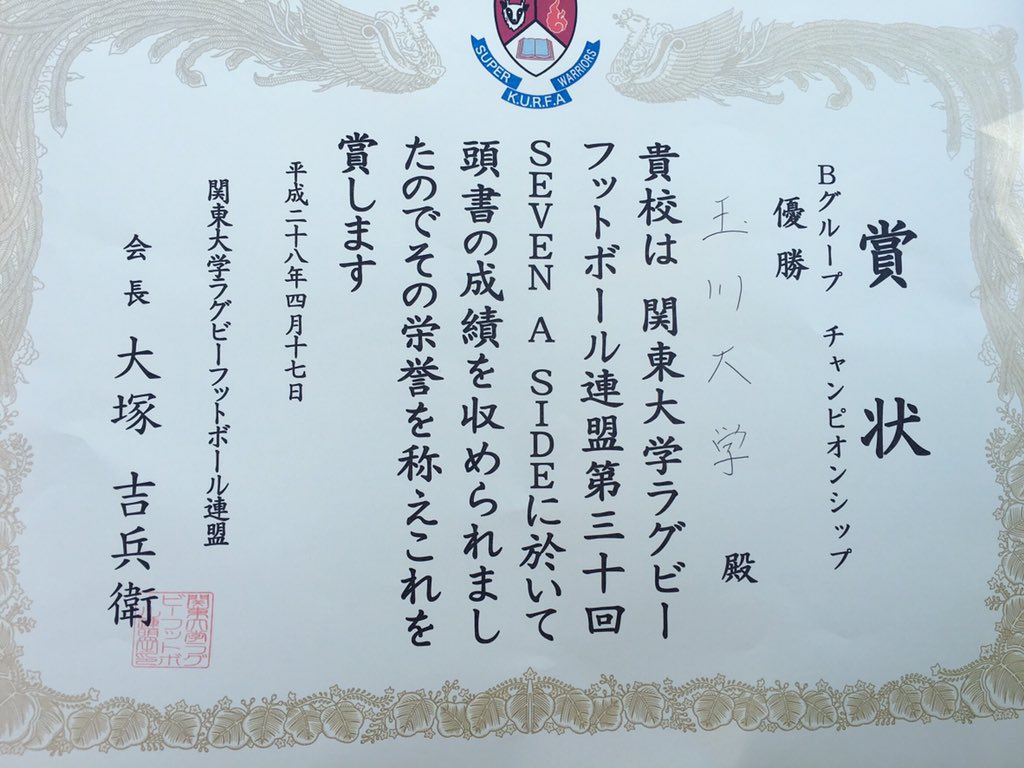 SUPER WARRIORS
K.U.R.F.A
賞状
Bグループ チャンピオンシップ
優勝
玉川大学 殿
貴校は 関東大学ラグビー
フットボール連盟第三十回
SEVEN A SIDEに於いて
頭書の成績を収められまし
たのでその栄誉を称えこれを
賞します
平成二十八年四月十七日
関東大学ラグビーフットボール連盟
会長 大塚 吉兵衛
関東大学ラグ
ビーフットボ
ール連盟之印